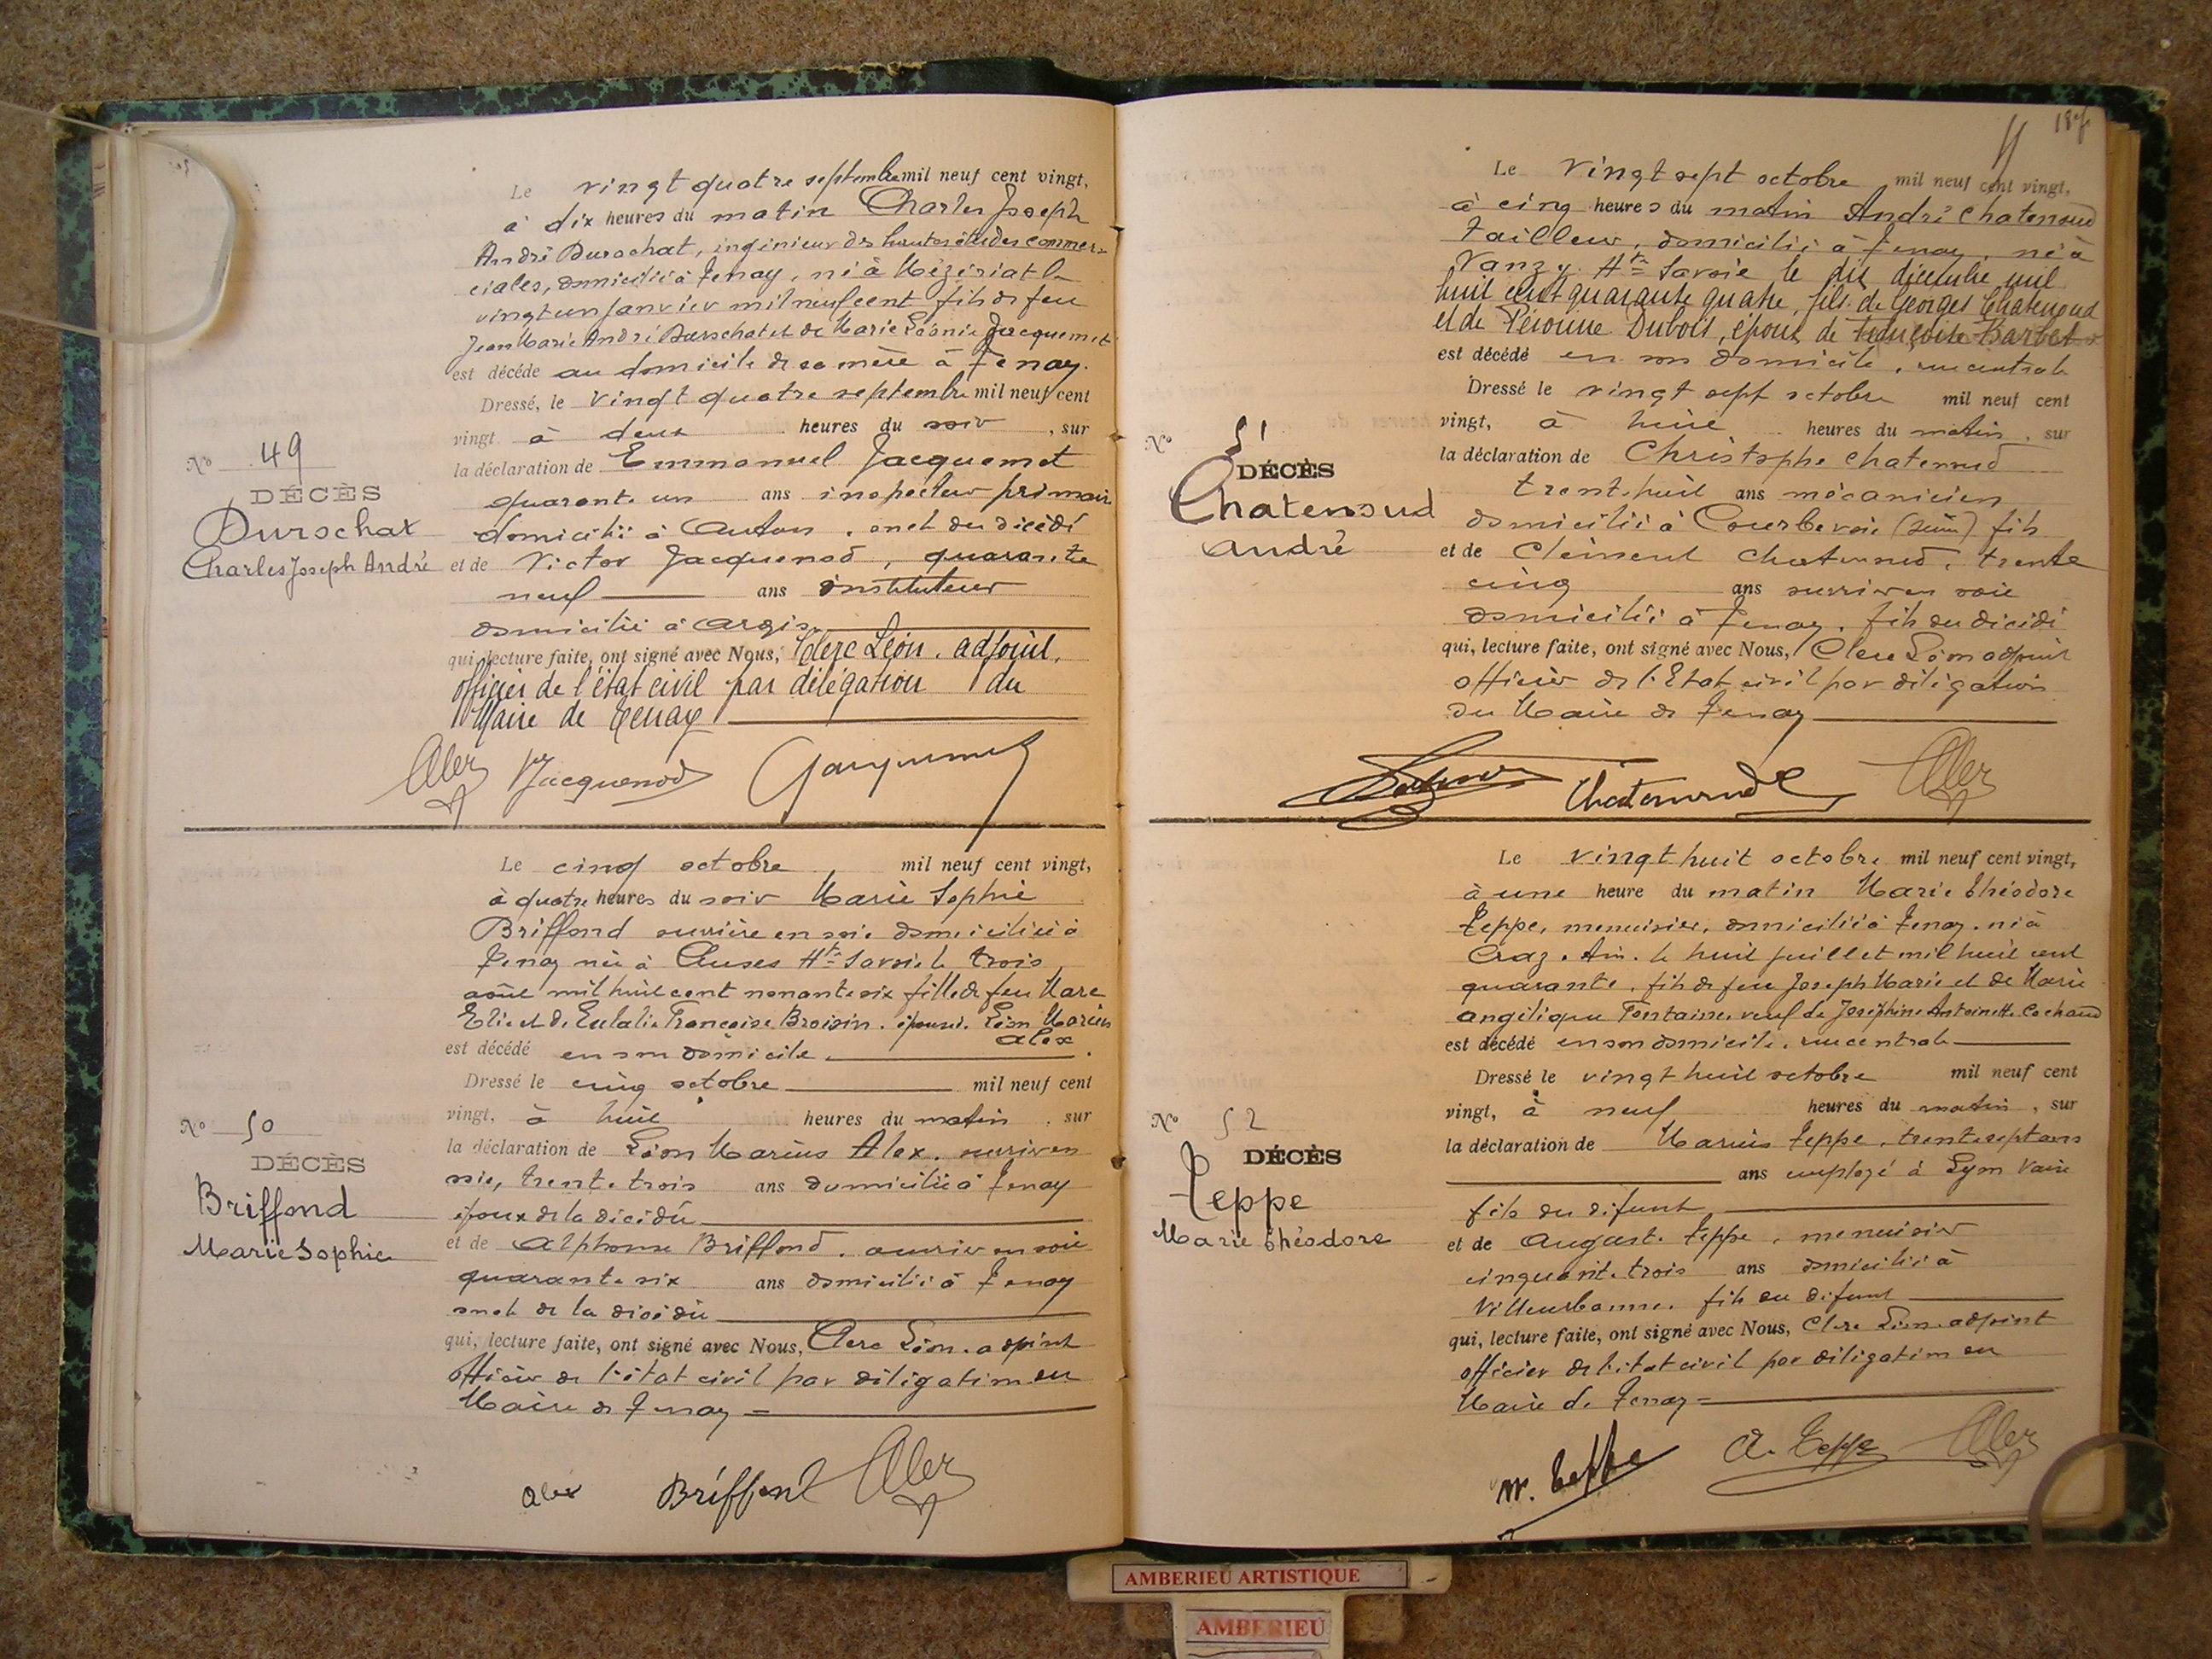 Le vingt quatre septembre mil neuf cent vingt,
à dix heures du matin Charles Joseph
André Durochat, ingénieur des hautes études commer-
ciales, domicilié à Tenay, né à Mézériat le
vingt un janvier mil neuf cent fils de feu
Jean Marie André Durochat et de Marie Léonie Jacquemet
est décédé au domicile de sa mère à Tenay.
Dressé, le vingt quatre septembre mil neuf cent
vingt à deux heures du soir, sur
la déclaration de Emmanuel Jacquemet
quarante un ans inspecteur primaire
domicilié à Autun, oncle du décédé
et de Victor Jacquenod, quarante
neuf ans instituteur
domicilié à Argis
qui, lecture faite, ont signé avec Nous, Clerc Léon, adjoint,
officier de l'état civil par délégation du
Maire de Tenay
Jacquenod Jacquemet
N° 49
DÉCÈS
Durochat
Charles Joseph André
Le cinq octobre mil neuf cent vingt,
à quatre heures du soir Marie Sophie
Briffond ouvrière en soie domiciliée à
Tenay née à Cluses Hte Savoie le trois
août mil huit cent nonante six fille de feu Marc
Elie et de Eulalie Françoise Broisin, épouse Léon Marius
Alex
est décédé en son domicile.
Dressé le cinq octobre mil neuf cent
vingt, à huit heures du matin, sur
la déclaration de Léon Marius Alex, ouvrier en
soie, trente trois ans domicilié à Tenay
époux de la décédée
et de Alphonse Briffond, ouvrier en soie
quarante six ans domicilié à Tenay
oncle de la décédée
qui, lecture faite, ont signé avec Nous, Clerc Léon, adjoint
officier de l'état civil par délégation du
Maire de Tenay =
Alex Briffond
N° 50
DÉCÈS
Briffond
Marie Sophie
Le vingt sept octobre mil neuf cent vingt,
à cinq heures du matin André Chatenoud
tailleur, domicilié à Tenay, né à
Vanzy Hte Savoie le dix décembre mil
huit cent quarante quatre, fils de Georges Chatenoud
et de Péronne Dubois, époux de Françoise Barbet
est décédé en son domicile, rue centrale
Dressé le vingt sept octobre mil neuf cent
vingt, à huit heures du matin, sur
la déclaration de Christophe Chatenoud
trente huit ans mécanicien
domicilié à Courbevoie (Seine) fils
et de Clément Chatenoud, trente
cinq ans ouvrier en soie
domicilié à Tenay, fils du décédé
qui, lecture faite, ont signé avec Nous, Clerc Léon adjoint
officier de l'Etat civil par délégation
du Maire de Tenay
Chatenoud
N° 51
DÉCÈS
Chatenoud
André
Le vingt huit octobre mil neuf cent vingt,
à une heure du matin Marie Théodore
Teppe, menuisier, domicilié à Tenay, né à
Craz, Ain, le huit juillet mil huit cent
quarante, fils de feu Joseph Marie et de Marie
Angélique Fontaine, veuf de Joséphine Antoinette Cochaud
est décédé en son domicile, rue centrale
Dressé le vingt huit octobre mil neuf cent
vingt, à neuf heures du matin, sur
la déclaration de Marius Teppe, trente sept ans
ans employé à Lyon Vaise
fils du défunt
et de August. Teppe, menuisier
cinquante trois ans domicilié à
Villeurbanne, fils du défunt
qui, lecture faite, ont signé avec Nous, Clerc Léon adjoint
officier de l'état civil par délégation du
Maire de Tenay =
M. Teppe A. Teppe
N° 52
DÉCÈS
Teppe
Marie Théodore
AMBERIEU ARTISTIQUE
AMBERIEU